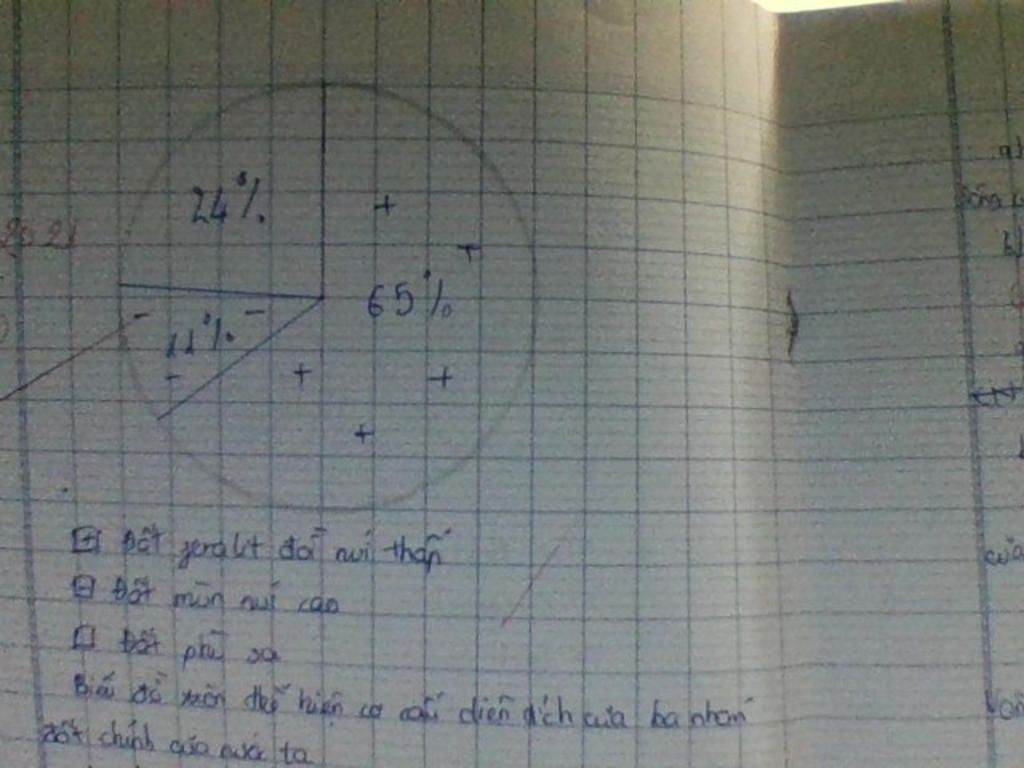 24%
65%
11%
Đất feralit đồi núi thấp
Đất mùn núi cao
Đất phù sa
Biểu đồ tròn thể hiện cơ cấu diện tích của ba nhóm
đất chính của nước ta
của